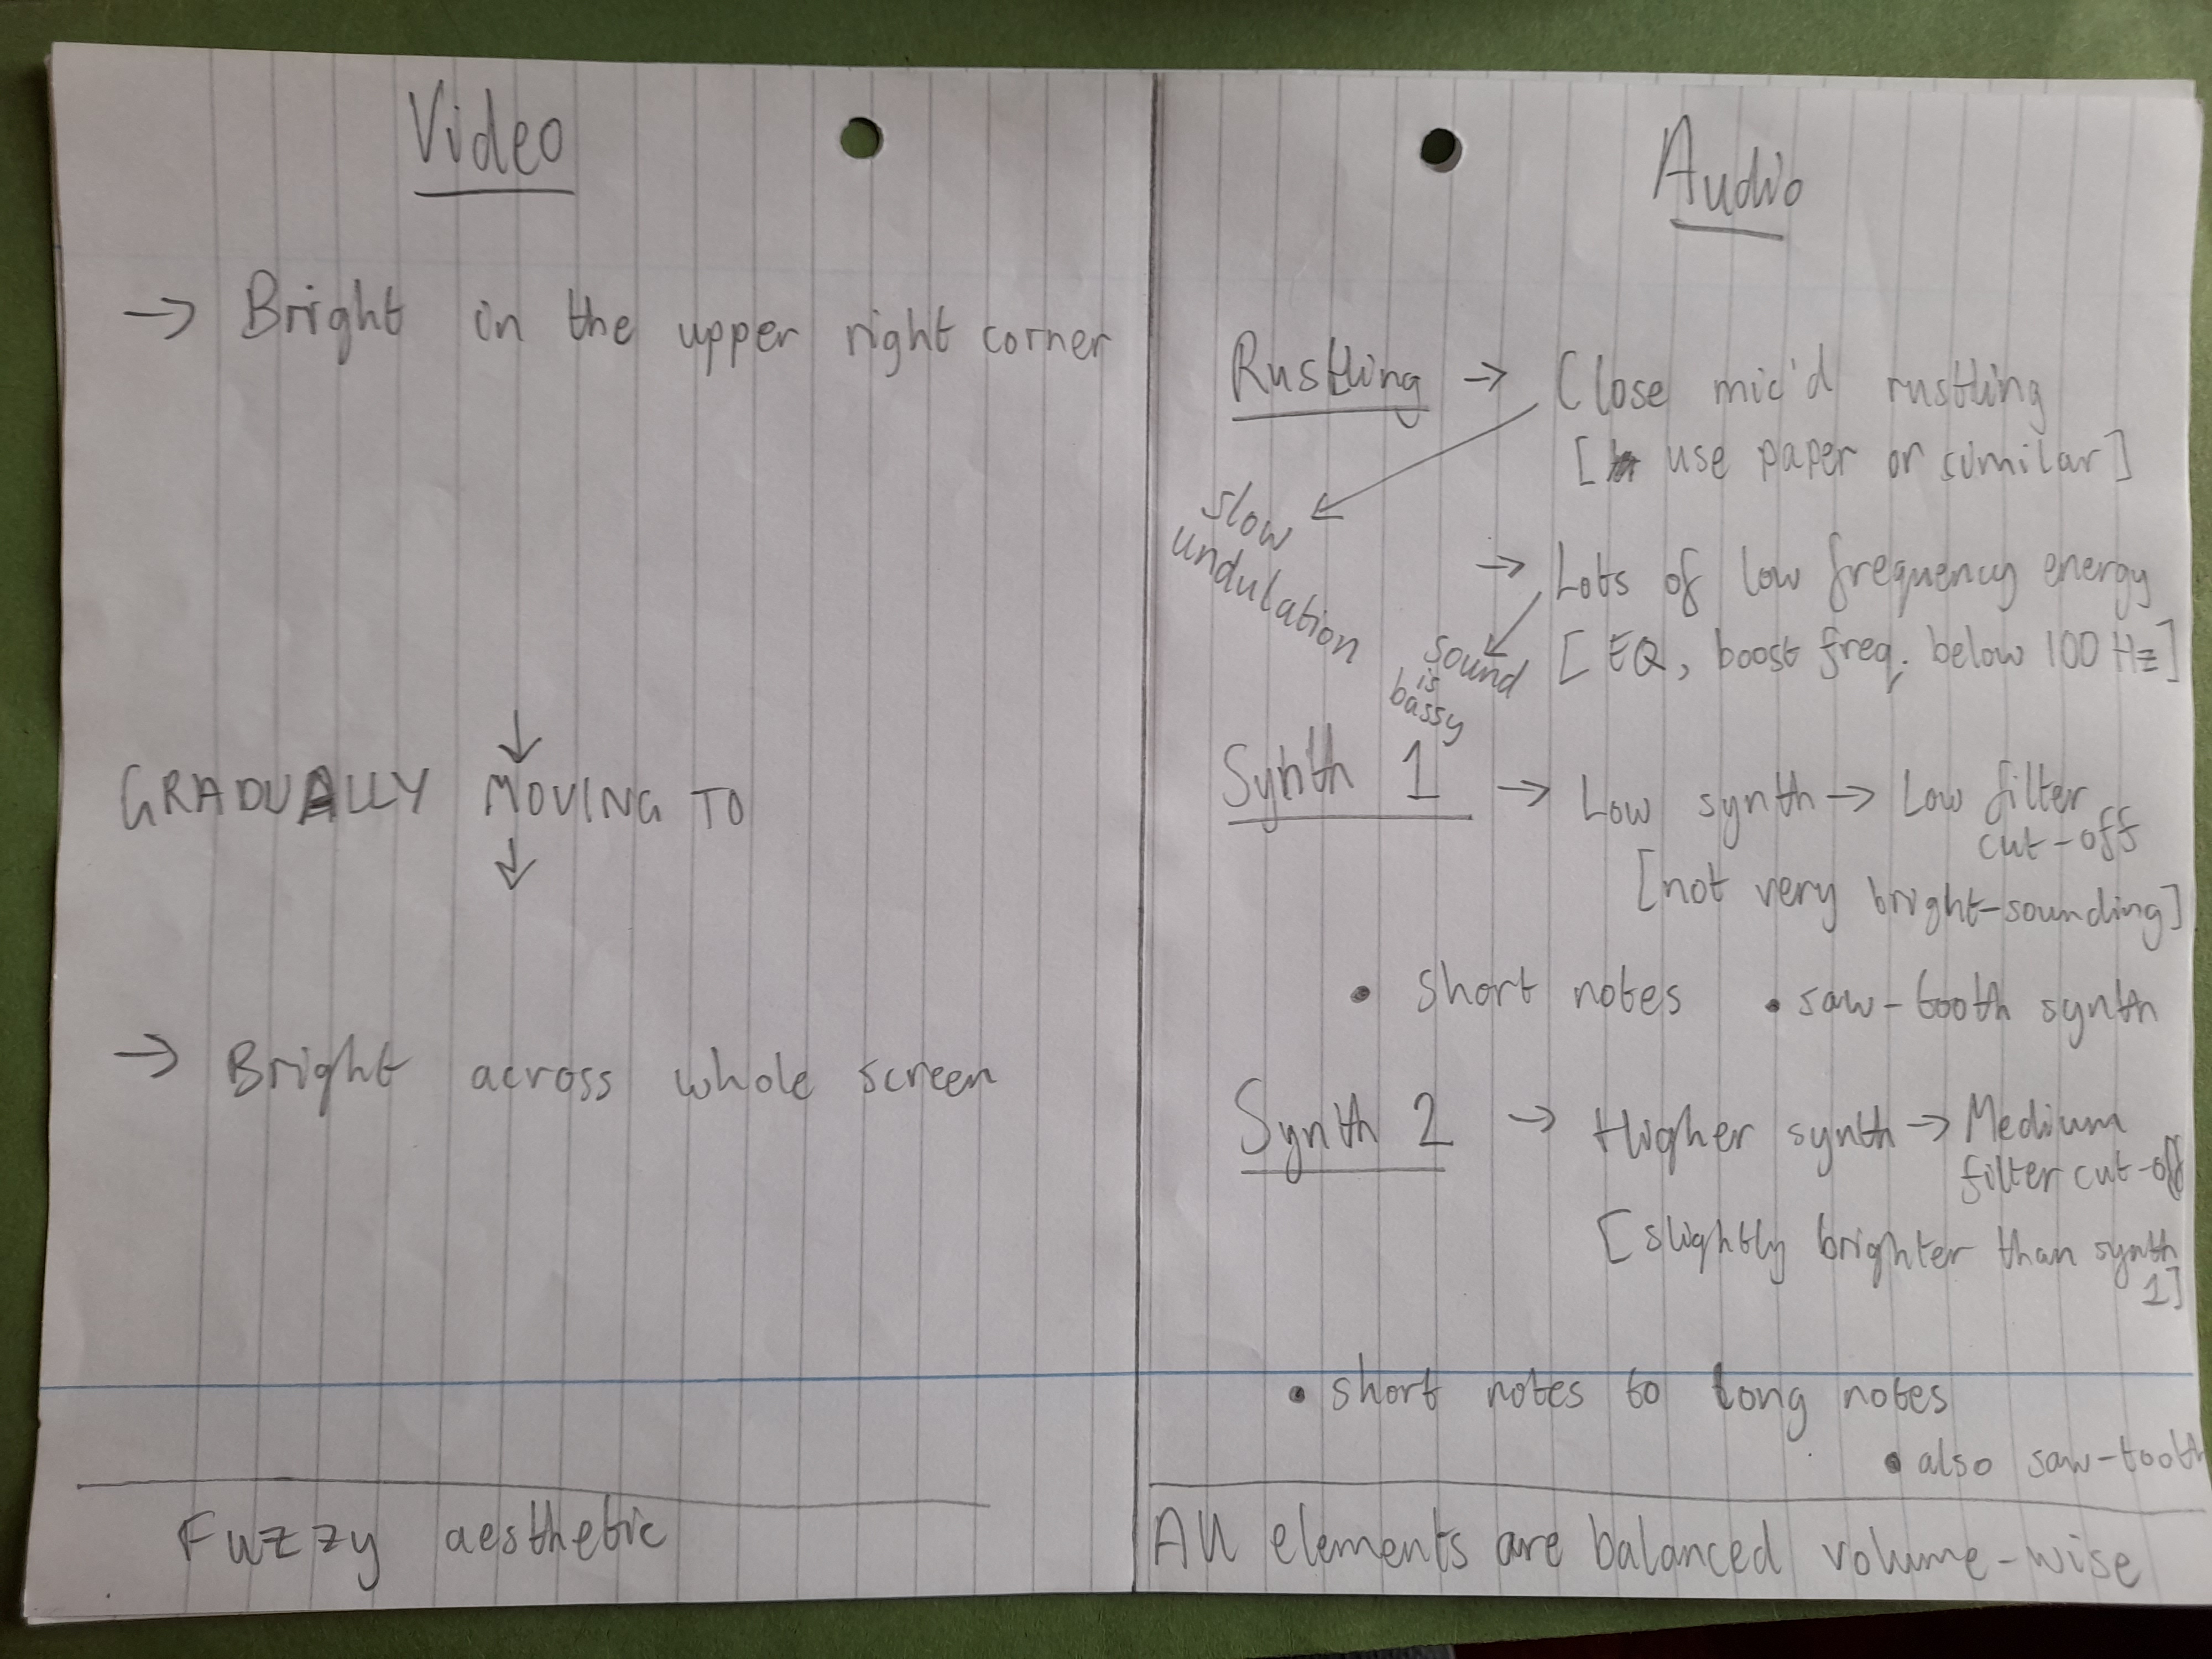 Video
→ Bright in the upper right corner
↓
GRADUALLY MOVING TO
↓
→ Bright across whole screen
Fuzzy aesthetic
Audio
Rustling → Close mic'd rustling
[use paper or similar]
slow
undulation
→ Lots of low frequency energy
[EQ, boost freq. below 100 Hz]
sound
is
bassy
Synth 1 → Low synth → Low filter
cut-off
[not very bright-sounding]
• short notes • saw-tooth synth
Synth 2 → Higher synth → Medium
filter cut-off
[slightly brighter than synth
1]
• short notes to long notes
• also saw-tooth
All elements are balanced volume-wise